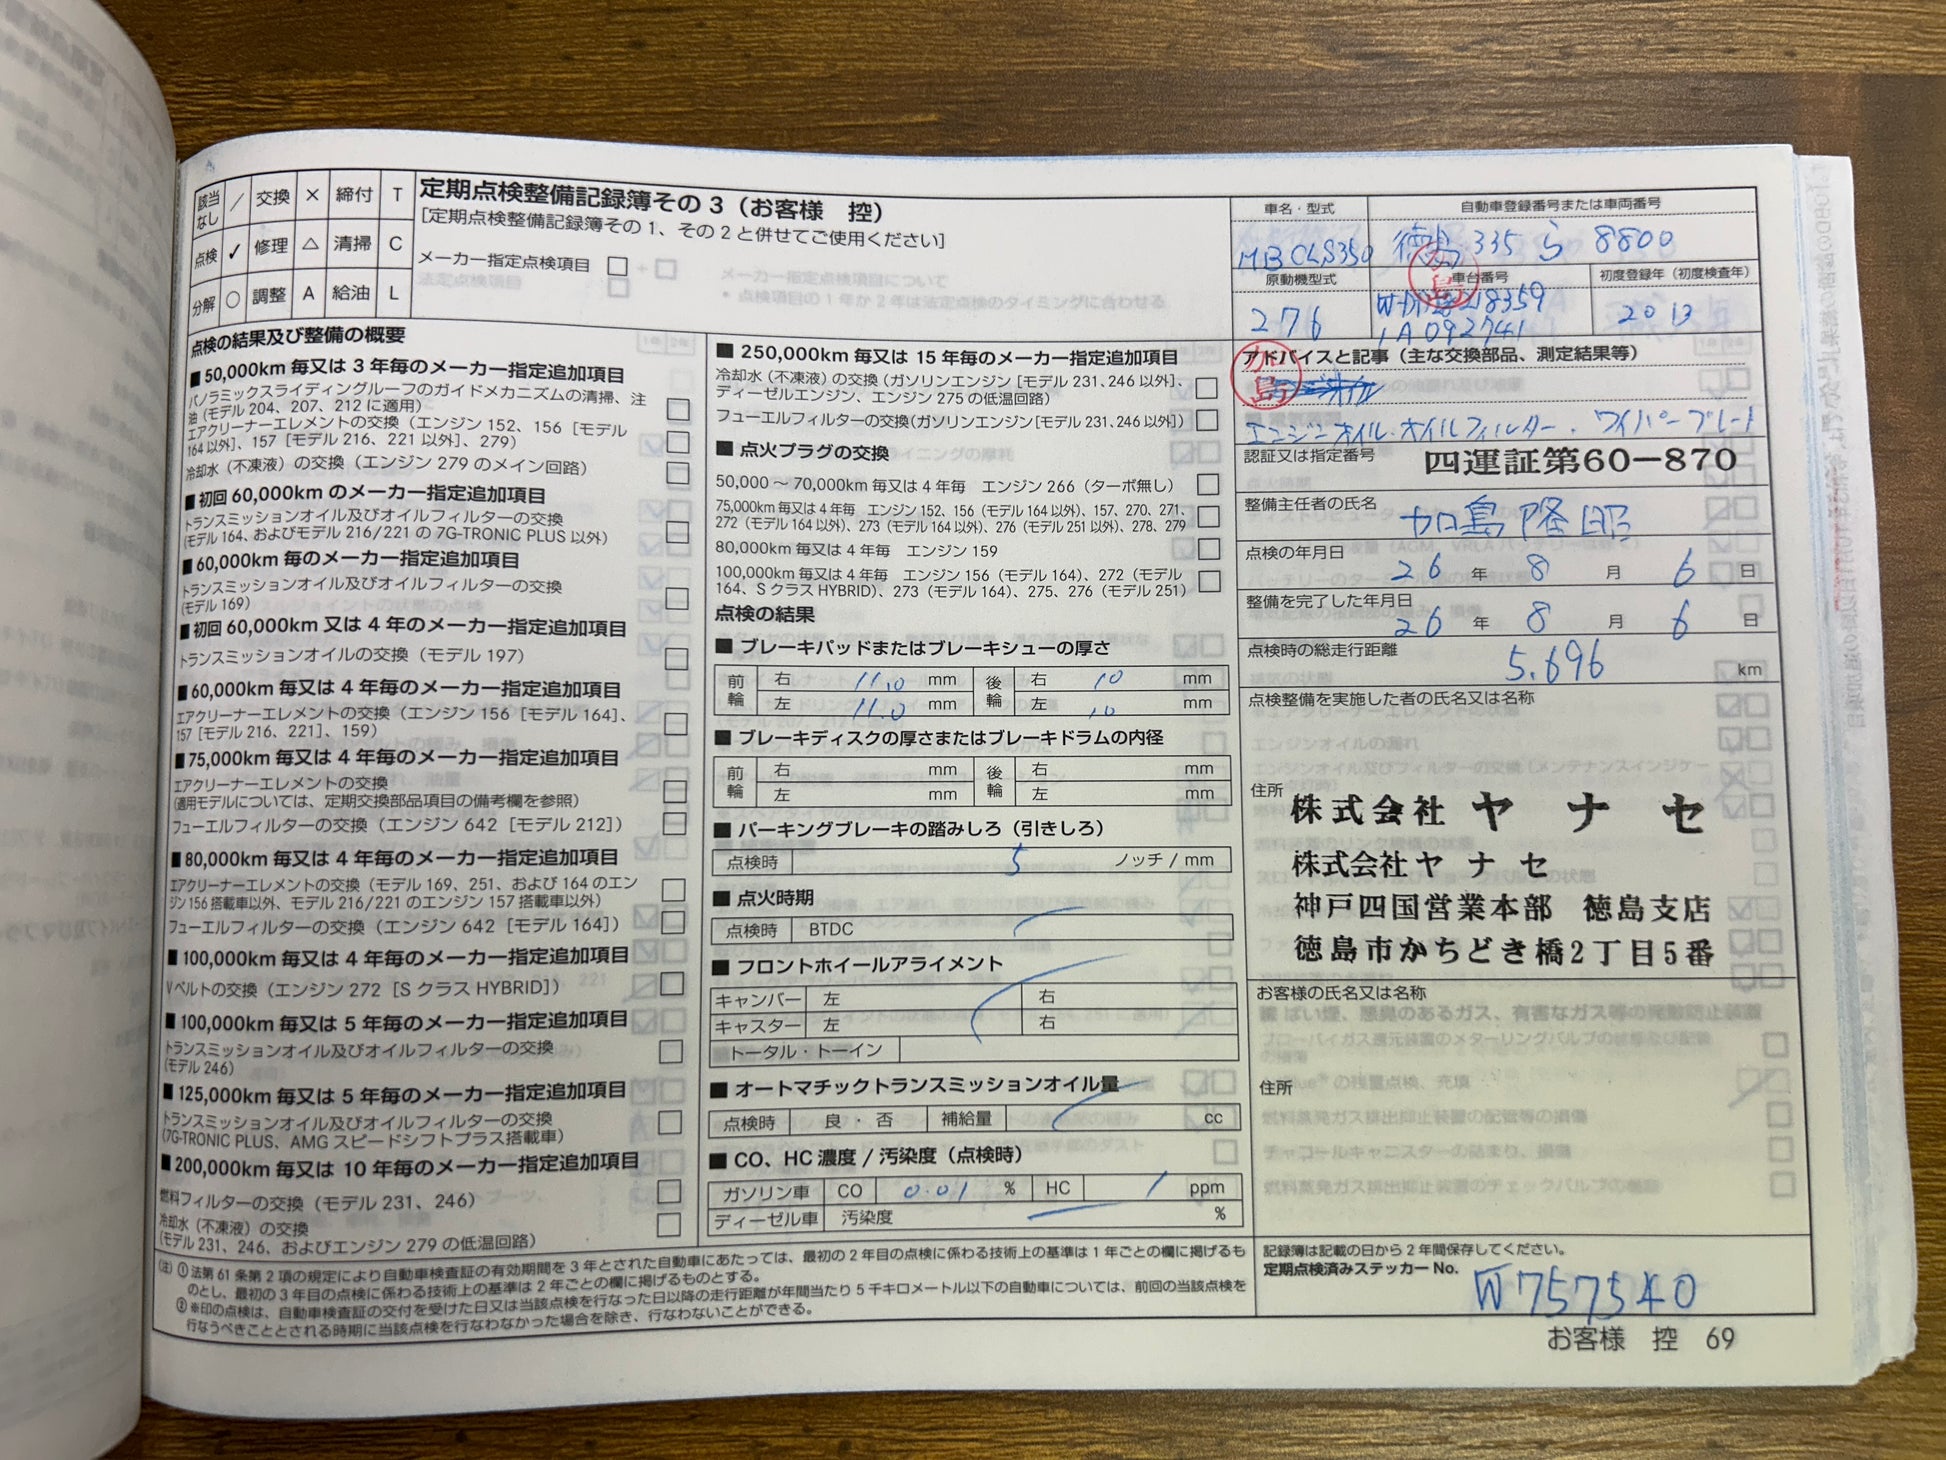 該当なし ／ 交換 × 締付 T
点検 ✓ 修理 △ 清掃 C
分解 ○ 調整 A 給油 L
定期点検整備記録簿その3（お客様　控）
[定期点検整備記録簿その1、その2と併せてご使用ください]
メーカー指定点検項目 □
点検の結果及び整備の概要
■50,000km毎又は3年毎のメーカー指定追加項目
パノラミックスライディングルーフのガイドメカニズムの清掃、注
油（モデル204、207、212に適用） □
エアクリーナーエレメントの交換（エンジン152、156［モデル
164以外］、157［モデル216、221以外］、279） □
冷却水（不凍液）の交換（エンジン279のメイン回路） □
■初回60,000kmのメーカー指定追加項目
トランスミッションオイル及びオイルフィルターの交換
（モデル164、およびモデル216/221の7G-TRONIC PLUS以外） □
■60,000km毎のメーカー指定追加項目
トランスミッションオイル及びオイルフィルターの交換
（モデル169） □
■初回60,000km又は4年毎のメーカー指定追加項目
トランスミッションオイルの交換（モデル197） □
■60,000km毎又は4年毎のメーカー指定追加項目
エアクリーナーエレメントの交換（エンジン156［モデル164］、
157［モデル216、221］、159） □
■75,000km毎又は4年毎のメーカー指定追加項目
エアクリーナーエレメントの交換
（適用モデルについては、定期交換部品項目の備考欄を参照） □
フューエルフィルターの交換（エンジン642［モデル212］） □
■80,000km毎又は4年毎のメーカー指定追加項目
エアクリーナーエレメントの交換（モデル169、251、および164のエン
ジン156搭載車以外、モデル216/221のエンジン157搭載車以外） □
フューエルフィルターの交換（エンジン642［モデル164］） □
■100,000km毎又は4年毎のメーカー指定追加項目
Vベルトの交換（エンジン272［SクラスHYBRID］） □
■100,000km毎又は5年毎のメーカー指定追加項目
トランスミッションオイル及びオイルフィルターの交換
（モデル246） □
■125,000km毎又は5年毎のメーカー指定追加項目
トランスミッションオイル及びオイルフィルターの交換
（7G-TRONIC PLUS、AMGスピードシフトプラス搭載車） □
■200,000km毎又は10年毎のメーカー指定追加項目
燃料フィルターの交換（モデル231、246） □
冷却水（不凍液）の交換
（モデル231、246、およびエンジン279の低温回路） □
■250,000km毎又は15年毎のメーカー指定追加項目
冷却水（不凍液）の交換（ガソリンエンジン［モデル231、246以外］、
ディーゼルエンジン、エンジン275の低温回路） □
フューエルフィルターの交換（ガソリンエンジン［モデル231、246以外］） □
■点火プラグの交換
50,000～70,000km毎又は4年毎　エンジン266（ターボ無し） □
75,000km毎又は4年毎　エンジン152、156（モデル164以外）、157、270、271、
272（モデル164以外）、273（モデル164以外）、276（モデル251以外）、278、279 □
80,000km毎又は4年毎　エンジン159 □
100,000km毎又は4年毎　エンジン156（モデル164）、272（モデル
164、SクラスHYBRID）、273（モデル164）、275、276（モデル251） □
点検の結果
■ブレーキパッドまたはブレーキシューの厚さ
前輪 右 11.0 mm 後輪 右 10 mm
左 11.0 mm 左 10 mm
■ブレーキディスクの厚さまたはブレーキドラムの内径
前輪 右 mm 後輪 右 mm
左 mm 左 mm
■パーキングブレーキの踏みしろ（引きしろ）
点検時 5 ノッチ/mm
■点火時期
点検時 BTDC
■フロントホイールアライメント
キャンバー 左 右
キャスター 左 右
トータル・トーイン
■オートマチックトランスミッションオイル量
点検時 良・否 補給量 cc
■CO、HC濃度/汚染度（点検時）
ガソリン車 CO 0.01 % HC 1 ppm
ディーゼル車 汚染度 %
車名・型式 自動車登録番号または車両番号
MB CLS350 徳島 335 ら 8800
原動機型式 車台番号 初度登録年（初度検査年）
276 2013
1A092741
アドバイスと記事（主な交換部品、測定結果等）
エンジンオイル.オイルフィルター. ワイパーブレード
認証又は指定番号 四運証第60−870
整備主任者の氏名
加島 隆昭
点検の年月日
26 年 8 月 6 日
整備を完了した年月日
26 年 8 月 6 日
点検時の総走行距離
5,696 km
点検整備を実施した者の氏名又は名称
住所
株式会社ヤナセ
株式会社ヤナセ
神戸四国営業本部　徳島支店
徳島市かちどき橋2丁目5番
お客様の氏名又は名称
住所
（注）①法第61条第2項の規定により自動車検査証の有効期間を3年とされた自動車にあたっては、最初の2年目の点検に係わる技術上の基準は1年ごとの欄に掲げるも
のとし、最初の3年目の点検に係わる技術上の基準は2年ごとの欄に掲げるものとする。
②※印の点検は、自動車検査証の交付を受けた日又は当該点検を行なった日以降の走行距離が年間当たり5千キロメートル以下の自動車については、前回の当該点検を
行なうべきこととされる時期に当該点検を行なわなかった場合を除き、行なわないことができる。
記録簿は記載の日から2年間保存してください。
定期点検済みステッカーNo.
W757540
お客様　控　69